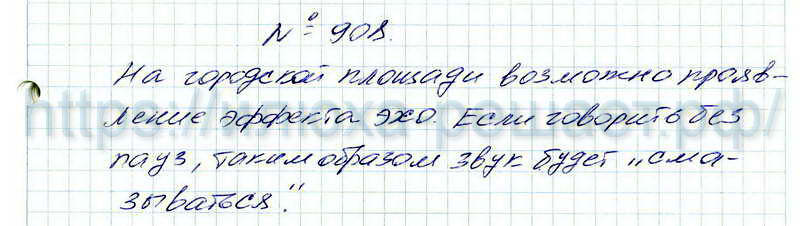 № 908.
На городской площади возможно прояв-
ление эффекта эхо. Если говорить без
пауз, таким образом звук будет „сма-
зываться".